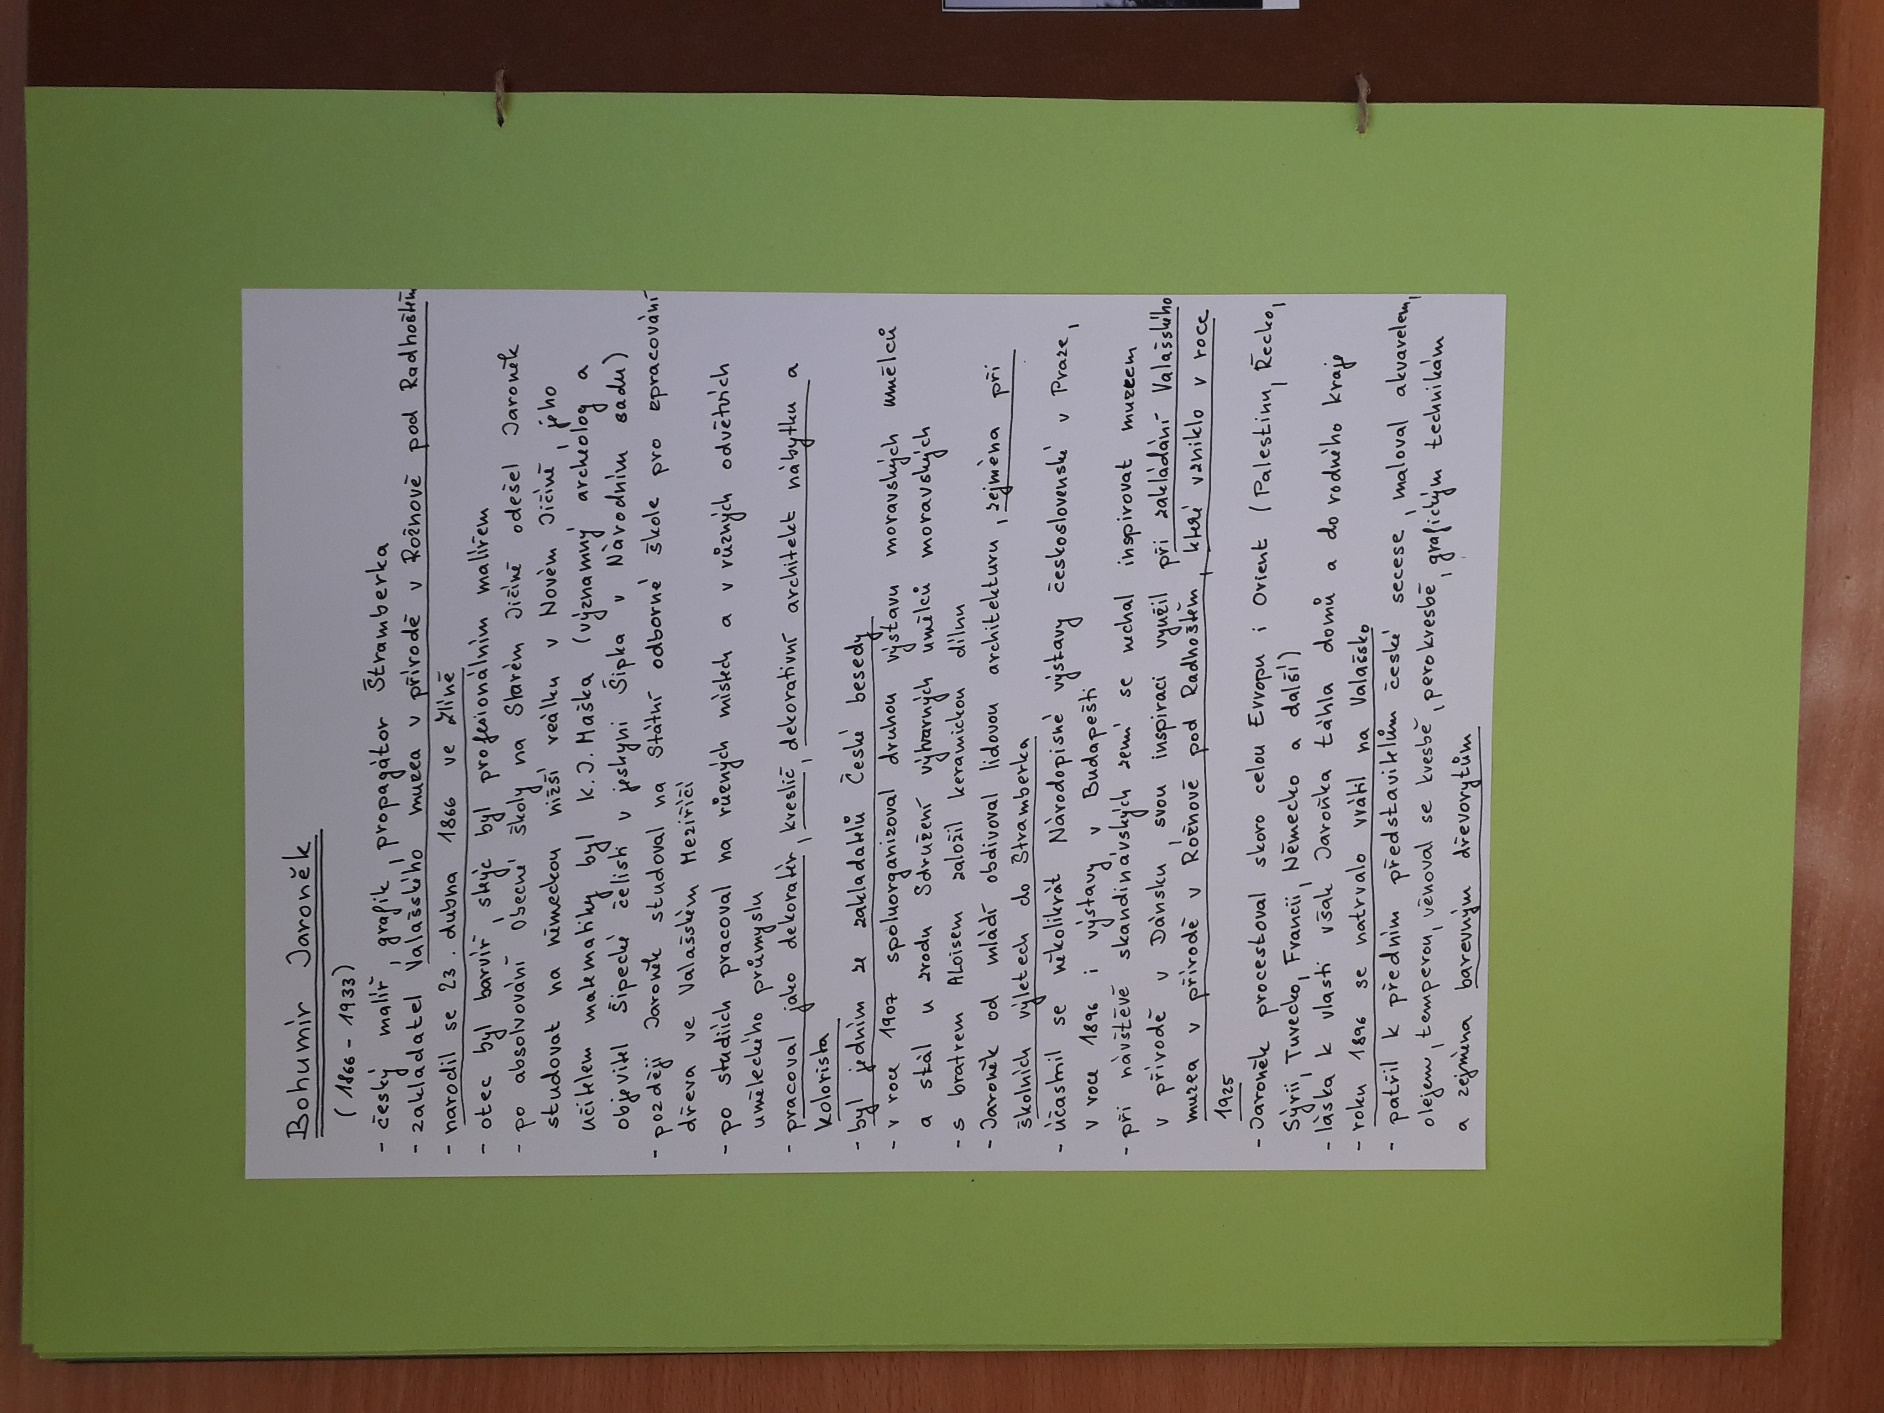 Bohumír Jaroněk
(1866 - 1933)
- český malíř, grafik, propagátor Štramberka
- zakladatel Valašského muzea v přírodě v Rožnově pod Radhoštěm
- narodil se 23. dubna 1866 ve Zlíně
- otec byl barvíř, strýc byl profesionálním malířem
- po absolvování Obecné školy na Starém Jičíně odešel Jaroněk
studovat na německou nižší reálku v Novém Jičíně, jeho
učitelem matematiky byl K. J. Maška (významný archeolog a
objevitel Šipecké čelisti v jeskyni Šipka v Národním sadu)
- později Jaroněk studoval na Státní odborné škole pro zpracování
dřeva ve Valašském Meziříčí
- po studiích pracoval na různých místech a v různých odvětvích
uměleckého průmyslu
- pracoval jako dekoratér, kreslíč, dekorativní architekt nábytku a
kolorista
- byl jedním ze zakladatelů České besedy
- v roce 1907 spoluorganizoval druhou výstavu moravských umělců
a stál u zrodu Sdružení výtvarných umělců moravských
- s bratrem Aloisem založil keramickou dílnu
- Jaroněk od mládí obdivoval lidovou architekturu, zejména při
školních výletech do Štramberka
- účastnil se několikrát Národopisné výstavy československé v Praze,
v roce 1896 i výstavy v Budapešti
- při návštěvě skandinávských zemí se nechal inspirovat muzeem
v přírodě v Dánsku, svou inspiraci využil při zakládání Valašského
muzea v přírodě v Rožnově pod Radhoštěm, které vzniklo v roce
1925
- Jaroněk procestoval skoro celou Evropu i Orient (Palestinu, Řecko,
Sýrii, Turecko, Francii, Německo a další)
- láska k vlasti však Jaroňka táhla domů a do rodného kraje
- roku 1896 se natrvalo vrátil na Valašsko
- patřil k předním představitelům české secese, maloval akvarelem,
olejem, temperou, věnoval se kresbě, perokresbě, grafickým technikám
a zejména barevným dřevorytům